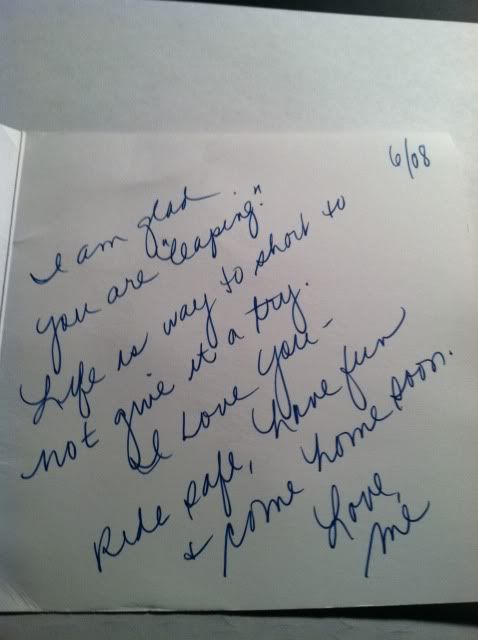 6/08
I am glad
you are "leaping."
Life is way to short to
not give it a try.
I Love you-
Ride safe, have fun
& come home soon.
Love,
me